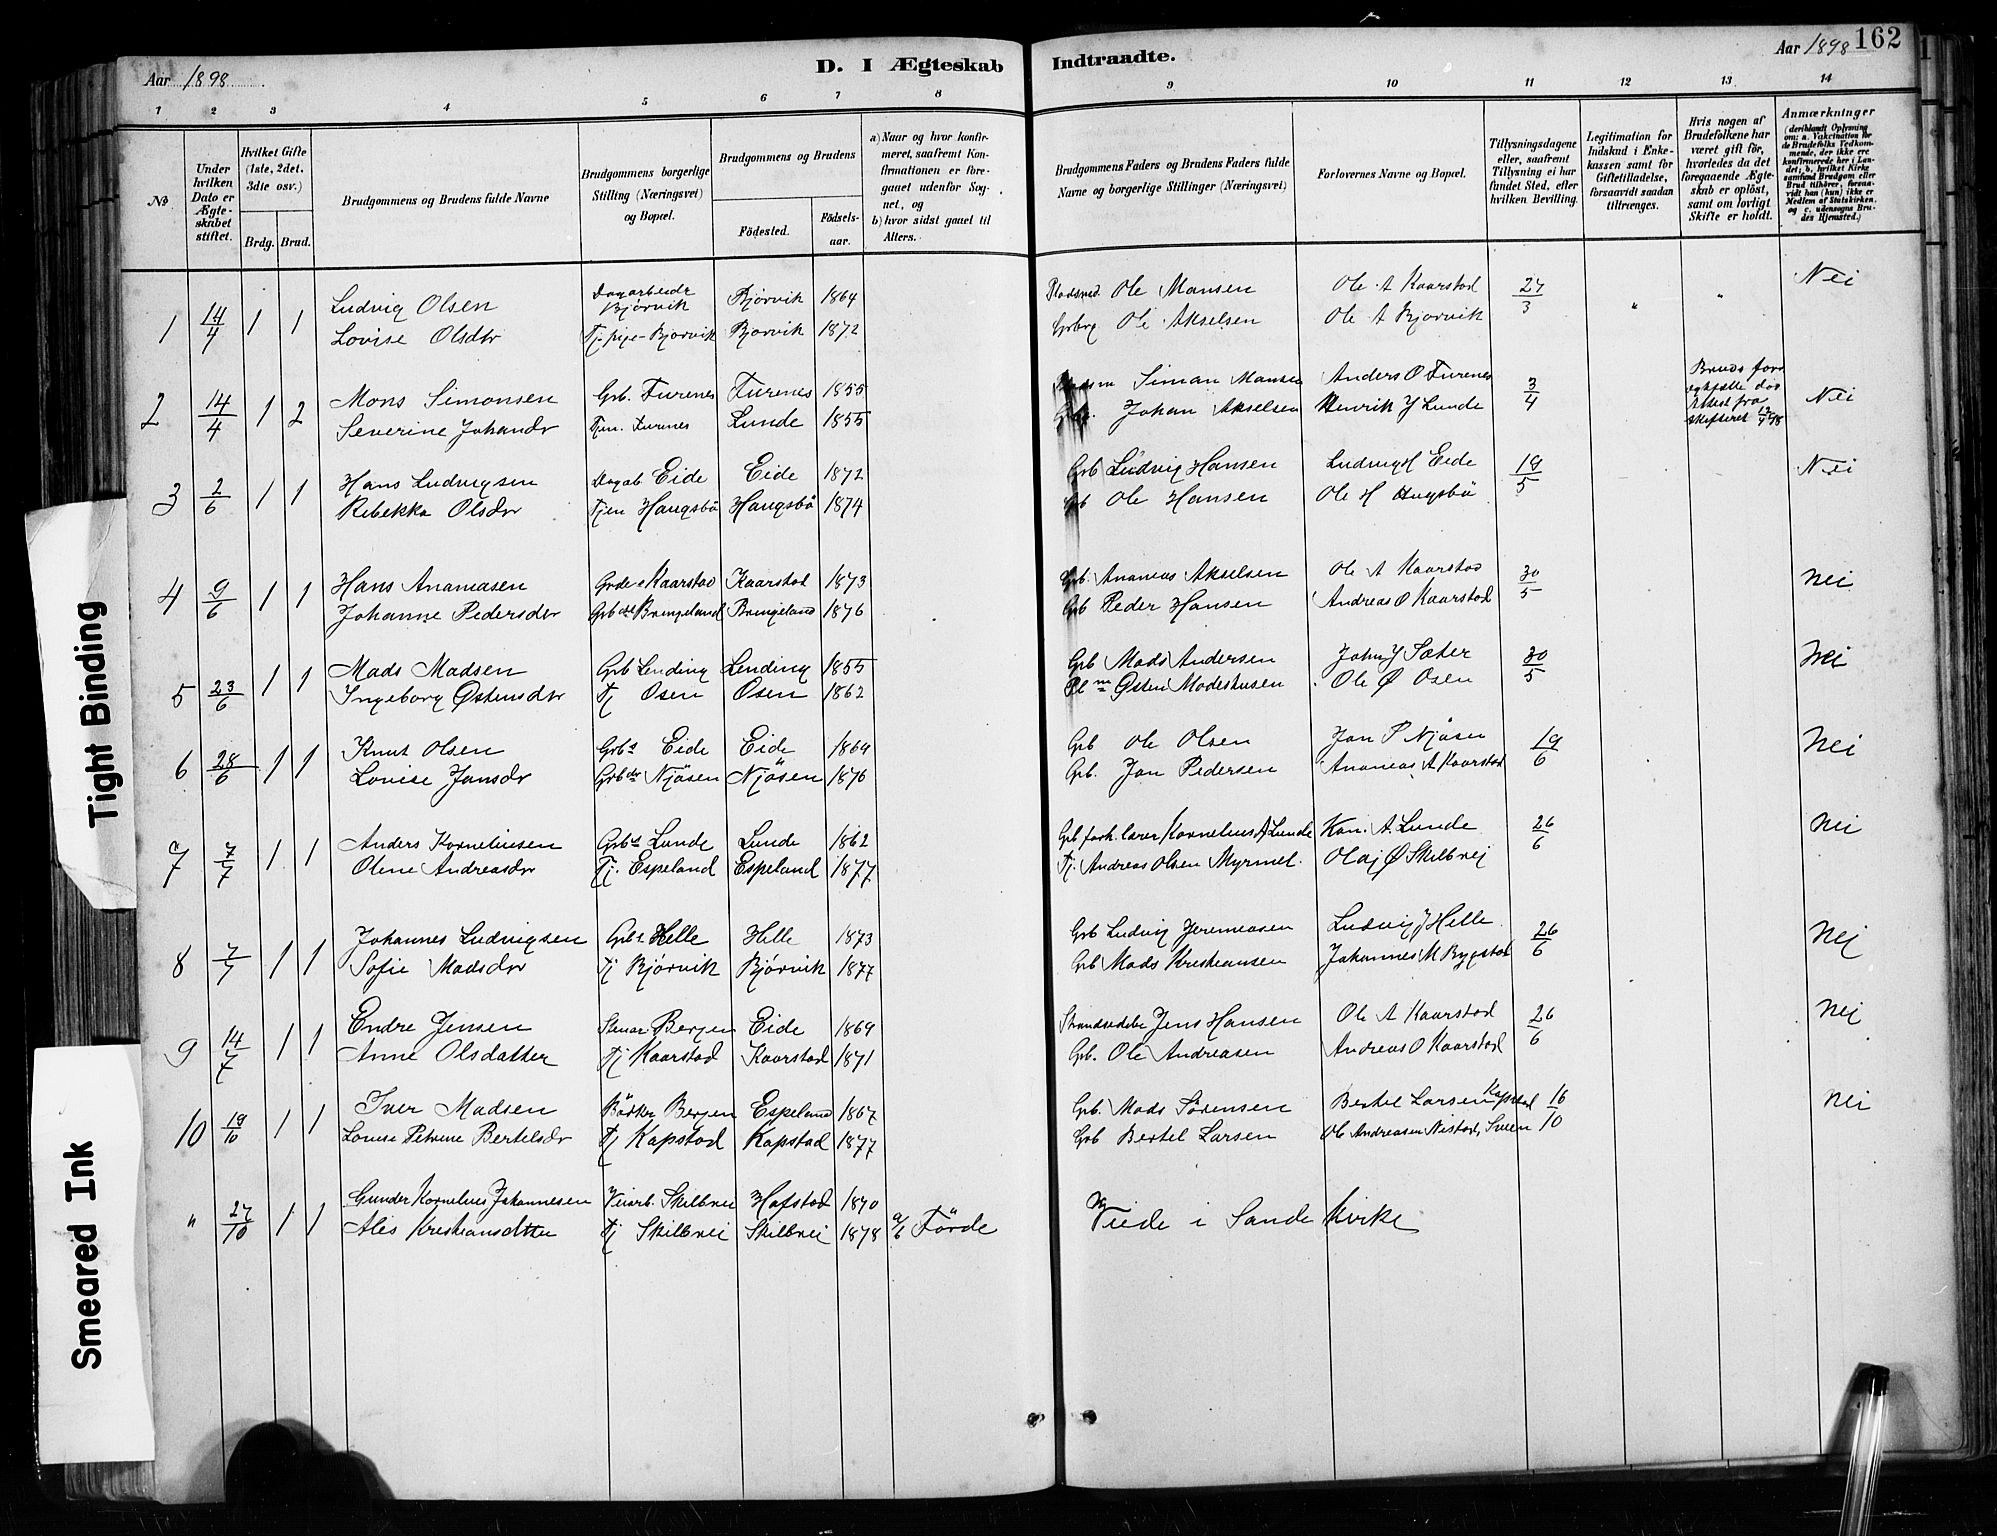 162
Aar 1898
D. I Ægteskab Indtraadte.
Aar 1898
1 2 3 4 5 6 7 8 9 10 11 12 13 14
No
Under hvilken Dato er Ægteskabet stiftet.
Hvilket Gifte (1ste, 2det, 3die osv.)
Brdg. Brud.
Brudgommens og Brudens fulde Navne
Brudgommens borgerlige Stilling (Næringsvei) og Bopæl.
Brudgommens og Brudens
Födested. Födselsaar.
a) Naar og hvor konfirmeret, saafremt Konfirmationen er foregaaet udenfor Sognet, og
b) hvor sidst gaaet til Alters.
Brudgommens Faders og Brudens Faders fulde Navne og borgerlige Stillinger (Næringsvei)
Forlovernes Navne og Bopæl.
Tillysningsdagene eller, saafremt Tillysning ei har fundet Sted, efter hvilken Bevilling.
Legitimation for Indskud i Enkekassen samt for Giftetilladelse, forsaavidt saadan tiltrænges.
Hvis nogen af Brudefolkene har været gift før, hvorledes da det foregaaende Ægteskab er oplöst, samt om lovligt Skifte er holdt.
Anmærkninger
(deriblandt Oplysning om: a. Vakcination for de Brudefolks Vedkommende, der ikke ere konfirmerede her i Landet; b. hvilket Kirkesamfund Brudgom eller Brud tilhörer, forsaavidt han (hun) ikke er Medlem af Statskirken. og c. udensogns Brudes Hjemsted.)
1 14/4 1 1 Ludvig Olsen Dagarbeidr Bjørvik Bjørvik 1864 Pladsmd. Ole Monsen Ole A Kaarstad 27/3 " " Nei
Lovise Olsdtr Tj. pige Bjørvik Bjørvik 1872 Grbrg Ole Akselsen Ole A Bjørvik
2 14/4 1 2 Mons Simonsen Grb. Furenes Furenes 1855 Simon Monsen Anders O Furenes 3/4 Nei
Severine Johansdr Tjen. Furenes Lunde 1855 Johan Akselsen Henrik J Lunde
3 2/6 1 1 Hans Ludvigsen Dagab Eide Eide 1872 Grb Ludvig Hansen Ludvig H Eide 19/5 Nei
Rebekka Olsdr Tjen Haugsbö Haugsbö 1874 Grb Ole Hansen Ole H Hugsbö
4 9/6 1 1 Hans Ananiasen Kaarstad Kaarstad 1873 Grb. Ananias Akselsen Ole A Kaarstad 30/5 Nei
Johanne Pedersdr Bringeland Bringeland 1876 Grb Peder Hansen Andreas O Kaarstad
5 23/6 1 1 Mads Madsen Grb Lending Lending 1855 Grb Mads Andersen John J Sæter 30/5 Nei
Ingeborg Østensdr Tj Osen Osen 1862 Østen Ole Ø Osen
6 28/6 1 1 Knut Olsen Grbs Eide Eide 1869 Grb Ole Olsen Jon P Njøsen 19/6 Nei
Lovise Jonsdr Grbdr Njösen Njösen 1876 Grb. Jon Pedersen Ananias A Kaarstad
7 7/7 1 1 Anders Korneliusen Grbs Lunde Lunde 1862 Grb forh. lærer Kornelius A Lunde Kon. A. Lunde 26/6 Nei
Oline Andreasdr Tj. Espeland Espeland 1877 Tj. Andreas Olsen Myrmel. Olaj Ø Skilbrej
8 7/7 1 1 Johannes Ludvigsen Grbs Helle Helle 1873 Grb Ludvig Jeremiasen Ludvig J Helle 26/6 Nej
Sofie Madsdr Tj Bjørvik Bjørvik 1877 Grb Mads Kristiansen Johannes M Bygstad
9 14/7 1 1 Endre Jensen Bergen Eide 1869 Jens Hansen Ole A Kaarstad 26/6 Nej
Anne Olsdatter Tj Kaarstad Kaarstad 1871 Grb. Ole Andreasen Andreas O Kaarstad
10 19/10 1 1 Iver Madsen Bödker Bergen Espeland 1867 Grb. Mads Sörensen Bertel Larsen Kapstad 16/10 Nei
Lovise Petrine Bertelsdr Tj Kapstad Kapstad 1877 Grb Bertel Larsen Ole Andreasen Nistad,
" 27/10 1 1 Gunder Kornelius Johannesen Veiarb. Skilbrei Hafstad 1870
Ales Kristiansdtter Tj Skilbrei Skilbrei 1878 a/b Förde Viede i Sande Kirke
Tight Binding
Smeared Ink